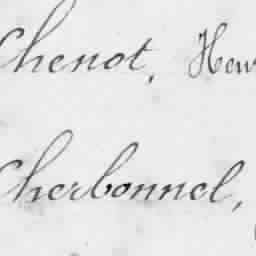 Chenot, Hen
Cherbonnel,